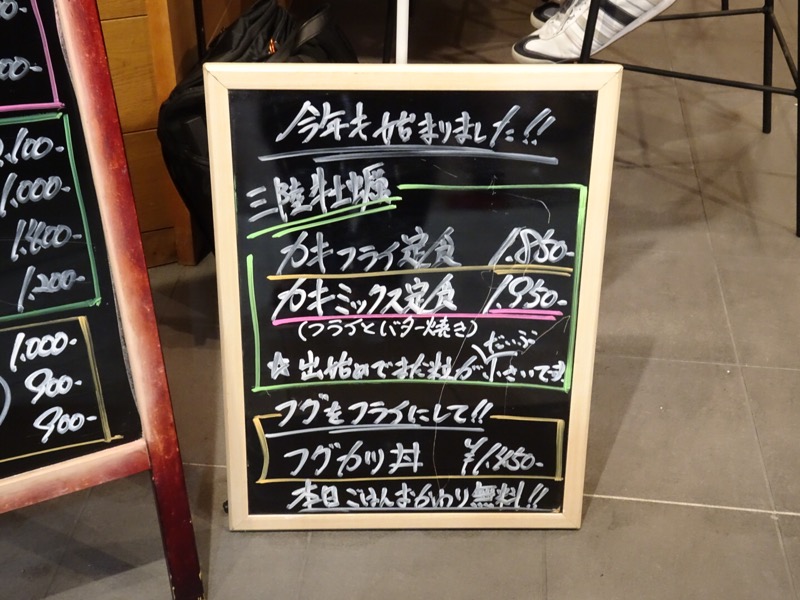 00-
2,100-
1,000-
1,400-
1,200-
1,000-
900-
900-
今年も始まりました!!
三陸牡蠣
カキフライ定食 1,850-
カキミックス定食 1,950-
(フライとバター焼き)
だいぶ
☆出始めでまだ粒が小さいです
フグをフライにして!!
フグカツ丼 ¥1,450-
本日ごはんおかわり無料!!